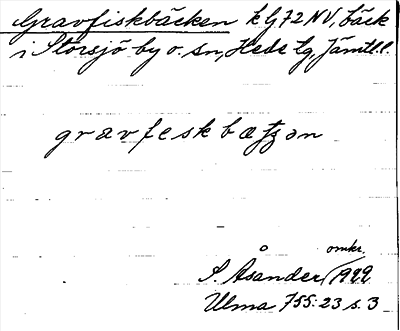 Gravfiskbäcken k G72NV, bäck
i Storsjö by o. sn, Hede tg, Jämtl. l.
gravfeskbætʒən
omkr.
S. Åsander / 1922
Ulma 755:23 s. 3